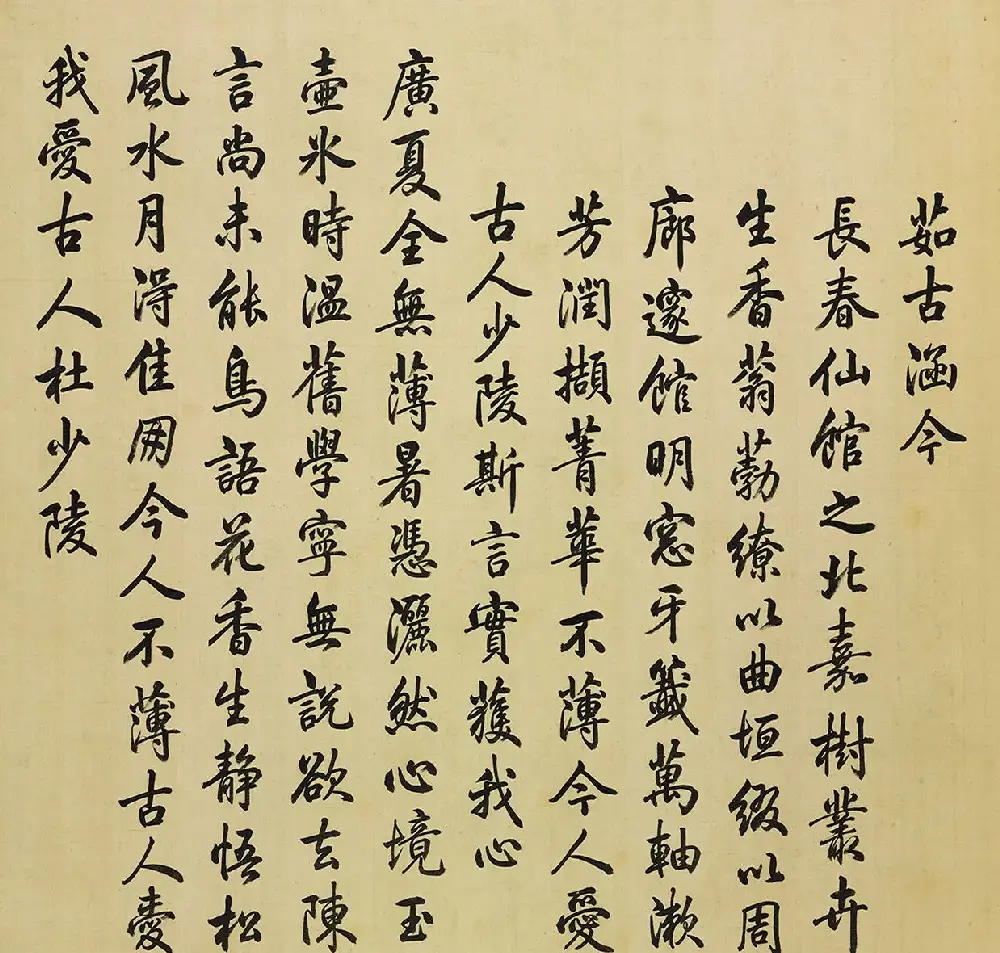 茹古涵今
長春仙館之北嘉樹叢卉
生香蓊葧繚以曲垣綴以周
廊邃館明窓牙籤萬軸漱
芳潤擷菁華不薄今人愛
古人少陵斯言實獲我心
廣夏全無薄暑憑灑然心境玉
壷氷時溫舊學寧無說欲去陳
言尚未能鳥語花香生静悟松
風水月淂佳朋今人不薄古人愛
我愛古人杜少陵